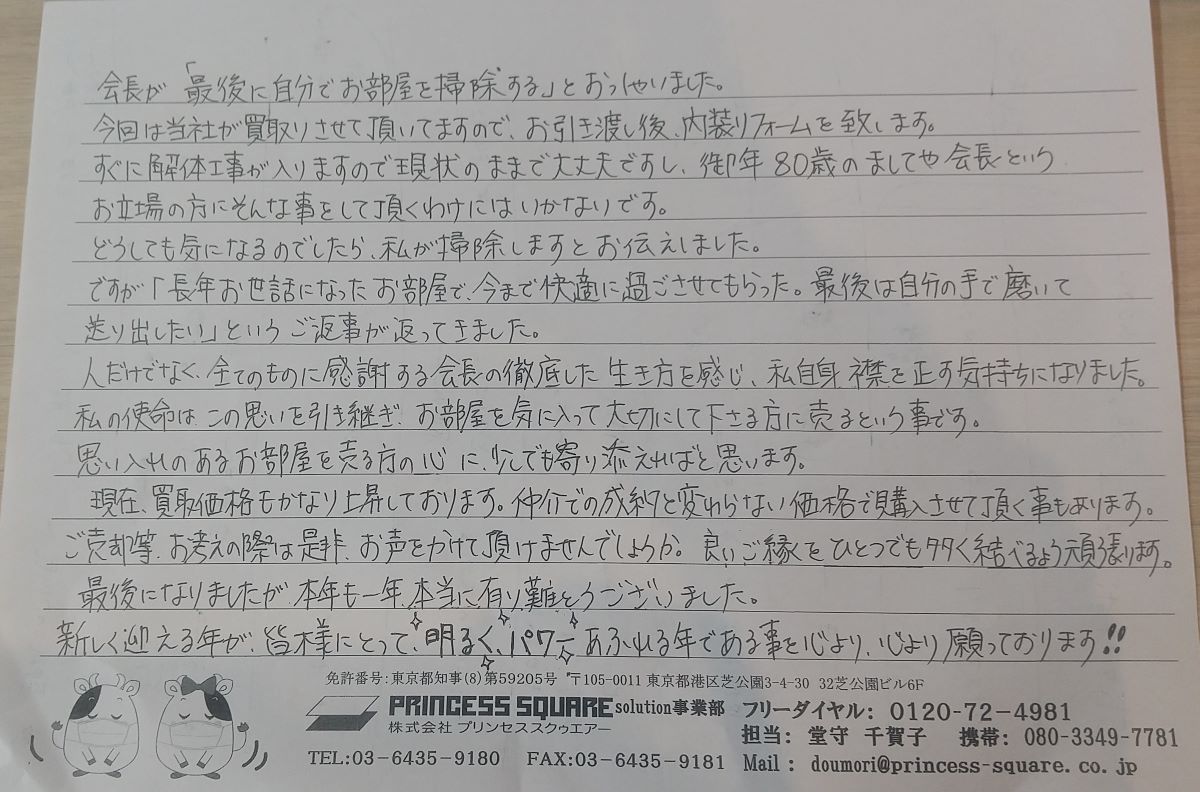 会長が「最後に自分でお部屋を掃除する」とおっしゃいました。
今回は当社が買取りさせて頂いてますので、お引き渡し後、内装リフォームを致します。
すぐに解体工事が入りますので現状のままで大丈夫ですし、御年80歳のましてや会長という
お立場の方にそんな事をして頂くわけにはいかないです。
どうしても気になるのでしたら、私が掃除しますとお伝えしました。
ですが「長年お世話になったお部屋で、今まで快適に過ごさせてもらった。最後は自分の手で磨いて
送り出したい」というご返事が返ってきました。
人だけでなく、全てのものに感謝する会長の徹底した生き方を感じ、私自身襟を正す気持ちになりました。
私の使命は、この思いを引き継ぎ、お部屋を気に入って大切にして下さる方に売るという事です。
思い入れのあるお部屋を売る方の心に、少しでも寄り添えればと思います。
現在、買取価格もかなり上昇しております。仲介での成約と変わらない価格で購入させて頂く事もあります。
ご売却等、お考えの際は是非、お声をかけて頂けませんでしょうか。良いご縁をひとつでも多く結べるよう頑張ります。
最後になりましたが、本年も一年、本当に有り難とうございました。
新しく迎える年が、皆様にとって、明るく、パワーあふれる年である事を心より、心より願っております!!
免許番号:東京都知事(8)第59205号 〒105-0011 東京都港区芝公園3-4-30 32芝公園ビル6F
PRINCESS SQUARE solution事業部 フリーダイヤル: 0120-72-4981
株式会社 プリンセススクゥエアー 担当: 堂守 千賀子 携帯: 080-3349-7781
TEL:03-6435-9180 FAX:03-6435-9181 Mail : doumori@princess-square.co.jp